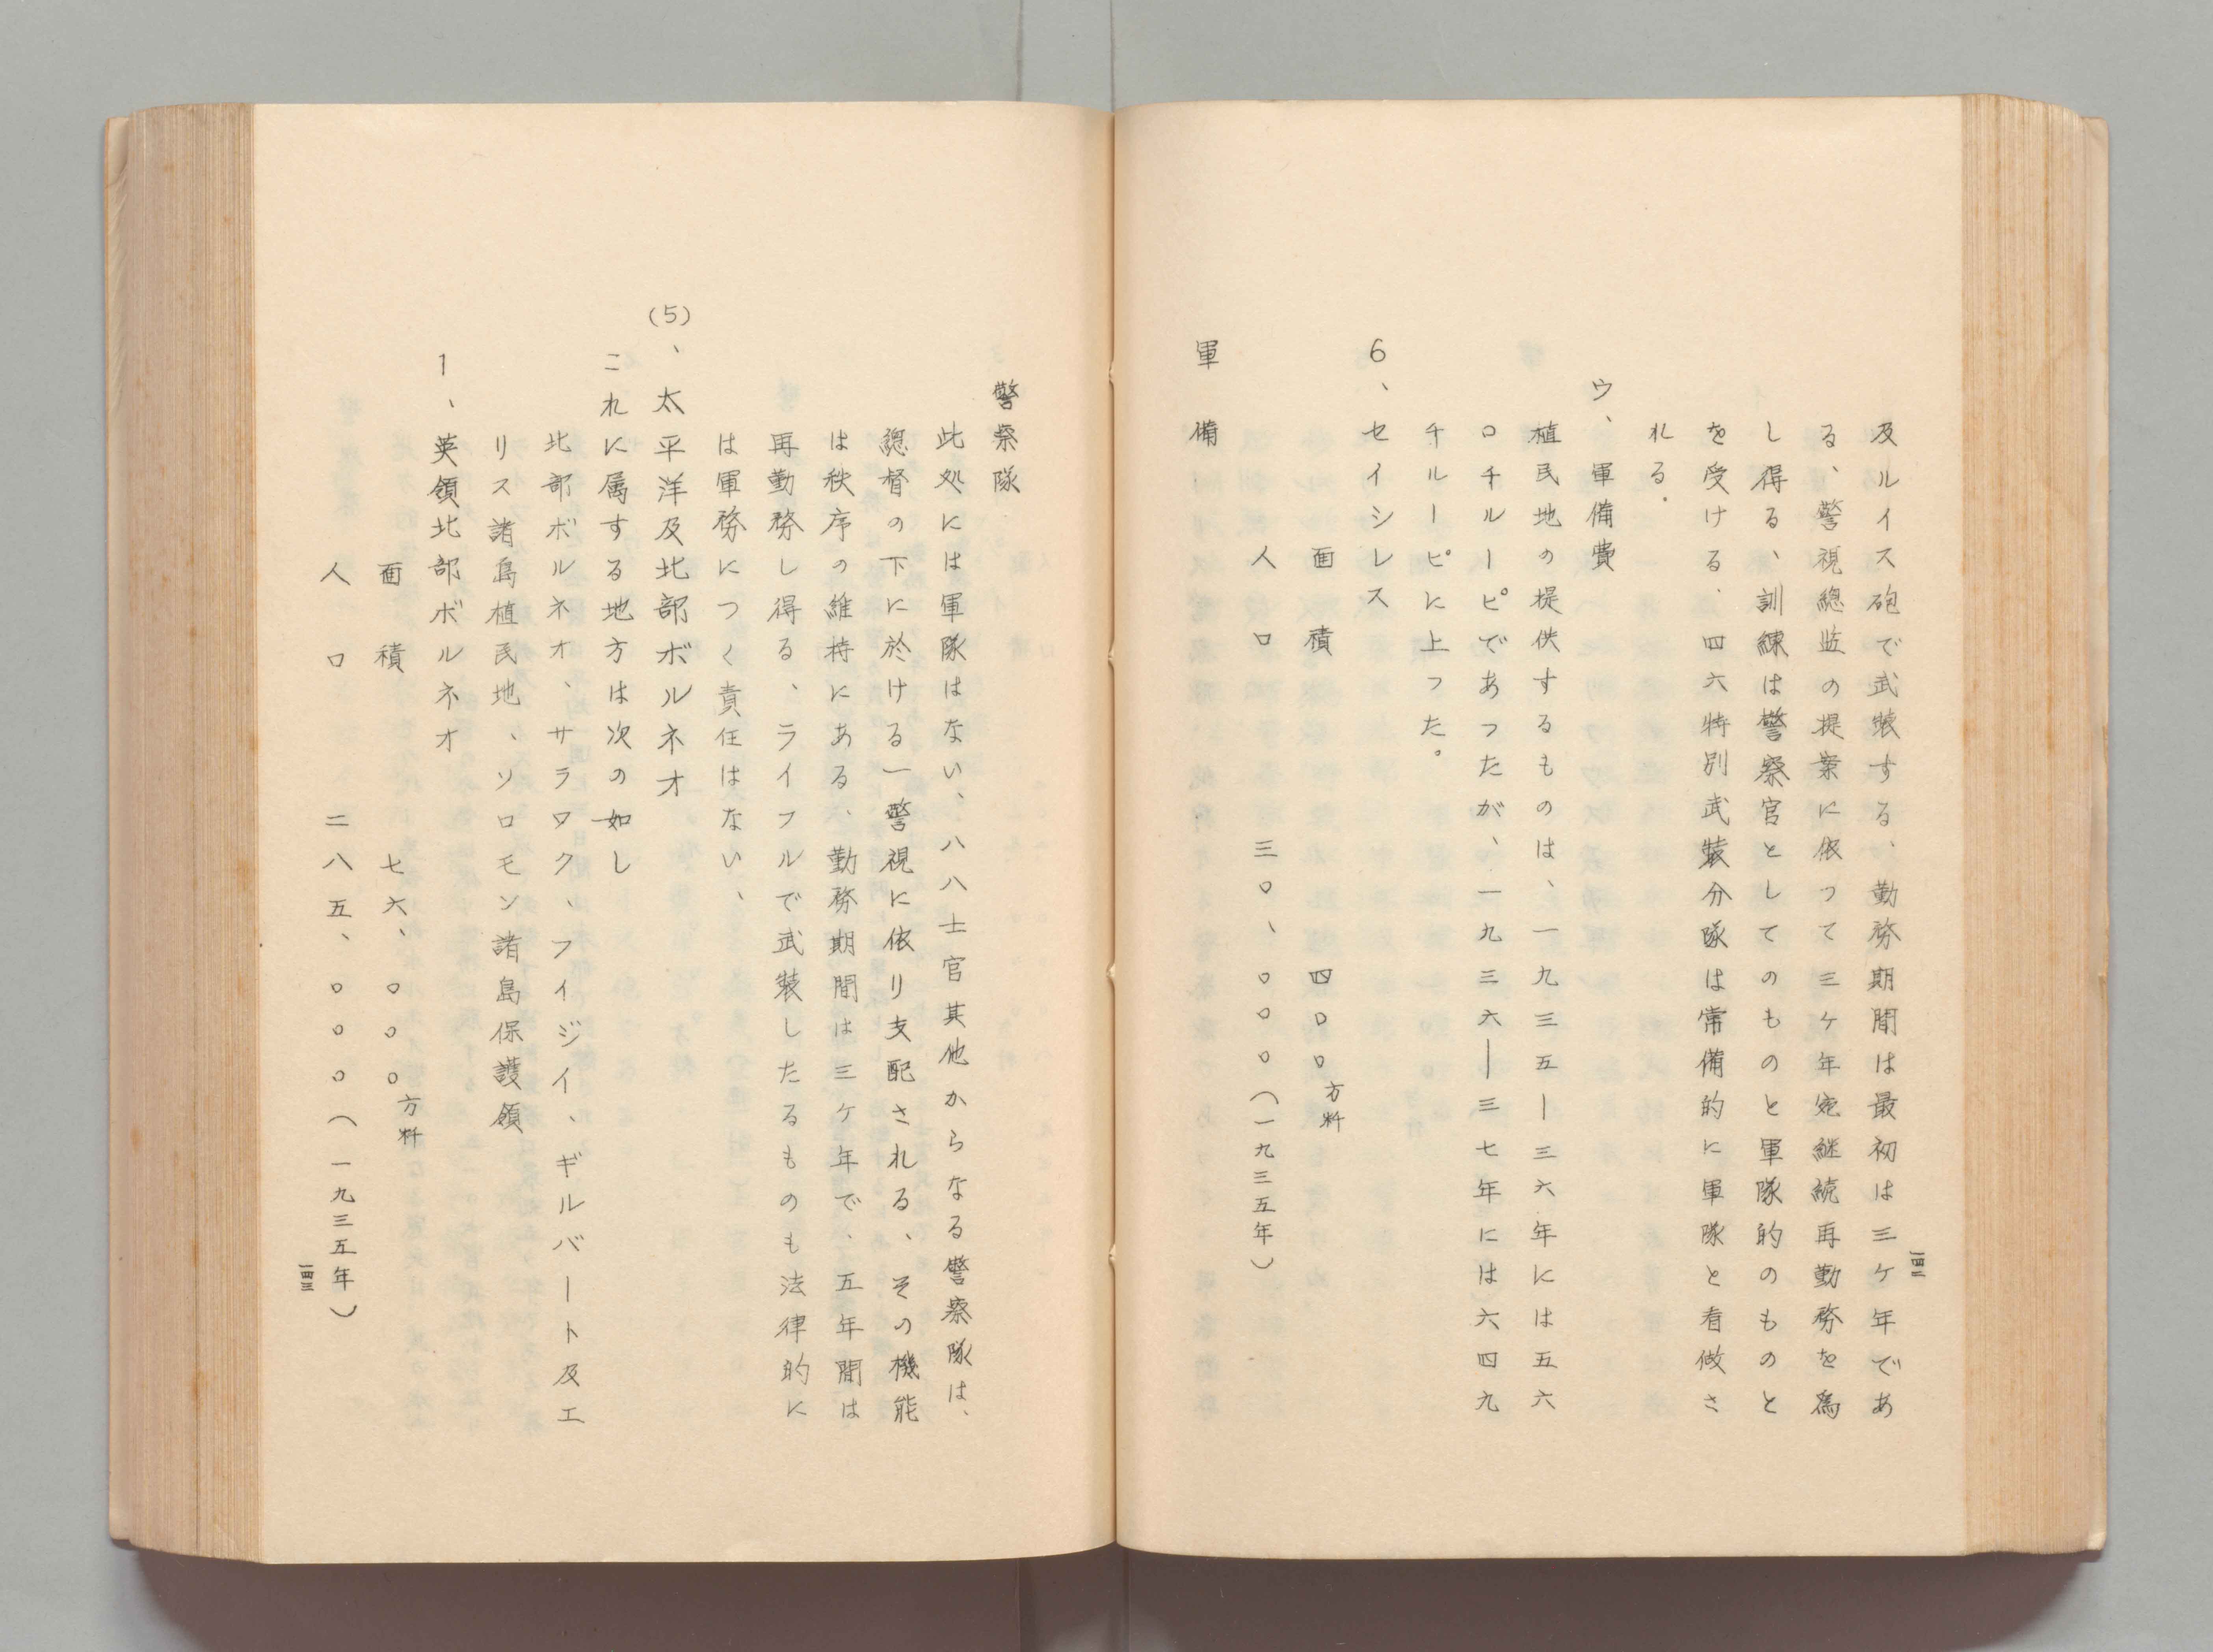 及ルイス砲で武装する、勤務期間は最初は三ケ年であ
る、警視總監の提案に依つて三ケ年宛継続再勤務を為
し得る、訓練は警察官としてのものと軍隊的のものと
を受ける．四六特別武装分隊は常備的に軍隊と看做さ
れる．
ウ、軍備費
植民地の提供するものは、一九三五ー三六年には五六
ロチルーピであつたが、一九三六ー三七年には六四九
チルーピに上つた。
6、セイシレス
面積 四〇〇方粁
人口 三〇、〇〇〇（一九三五年）
軍備
一四二
警察隊
此処には軍隊はない、八八士官其他からなる警察隊は、
總督の下に於ける一警視に依リ支配される、その機能
は秩序の維持にある、勤務期間は三ケ年で、五年間は
再勤務し得る、ライフルで武装したるものも法律的に
は軍務につく責任はない、
(5)、太平洋及北部ボルネオ
これに属する地方は次の如し
北部ボルネオ、サラワク、フイジイ、ギルバート及エ
リス諸島植民地、ソロモン諸島保護領
1、英領北部ボルネオ
面積 七六、〇〇〇方粁
人口 二八五、〇〇〇（一九三五年）
一四三